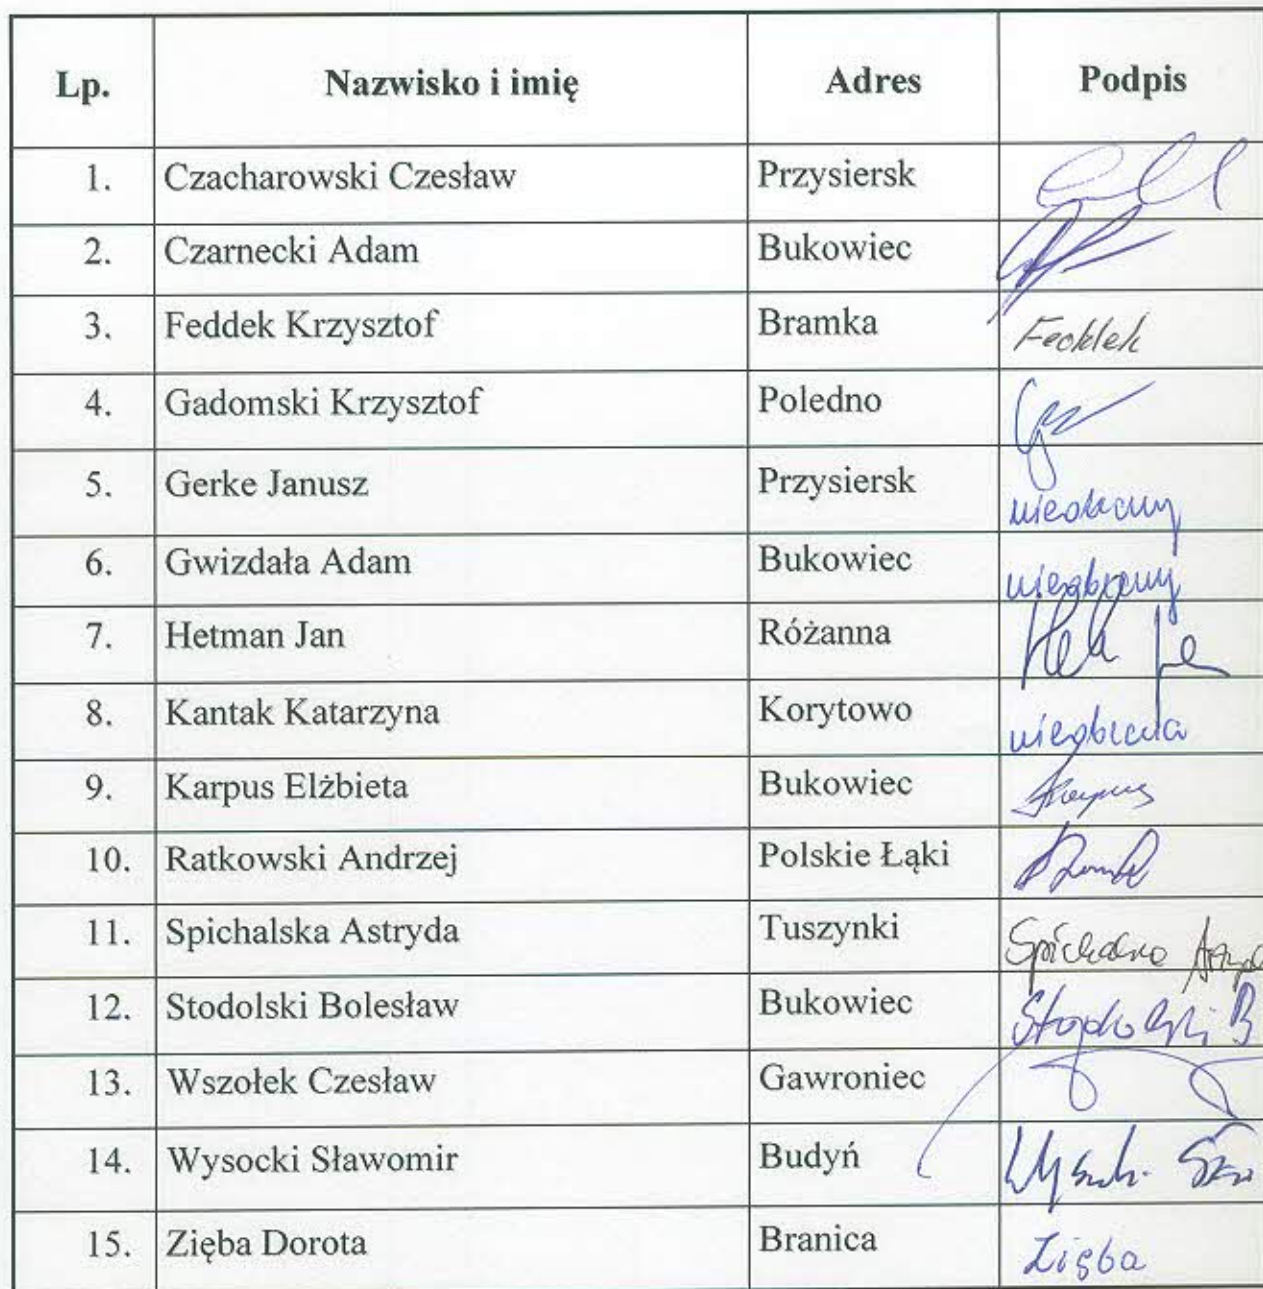 Lp. Nazwisko i imię Adres Podpis
1. Czacharowski Czesław Przysiersk
2. Czarnecki Adam Bukowiec
3. Feddek Krzysztof Bramka Feddek
4. Gadomski Krzysztof Poledno
5. Gerke Janusz Przysiersk nieobecny
6. Gwizdała Adam Bukowiec nieobecny
7. Hetman Jan Różanna
8. Kantak Katarzyna Korytowo nieobecna
9. Karpus Elżbieta Bukowiec Karpus
10. Ratkowski Andrzej Polskie Łąki
11. Spichalska Astryda Tuszynki
12. Stodolski Bolesław Bukowiec Stodolski B
13. Wszołek Czesław Gawroniec
14. Wysocki Sławomir Budyń
15. Zięba Dorota Branica Zięba